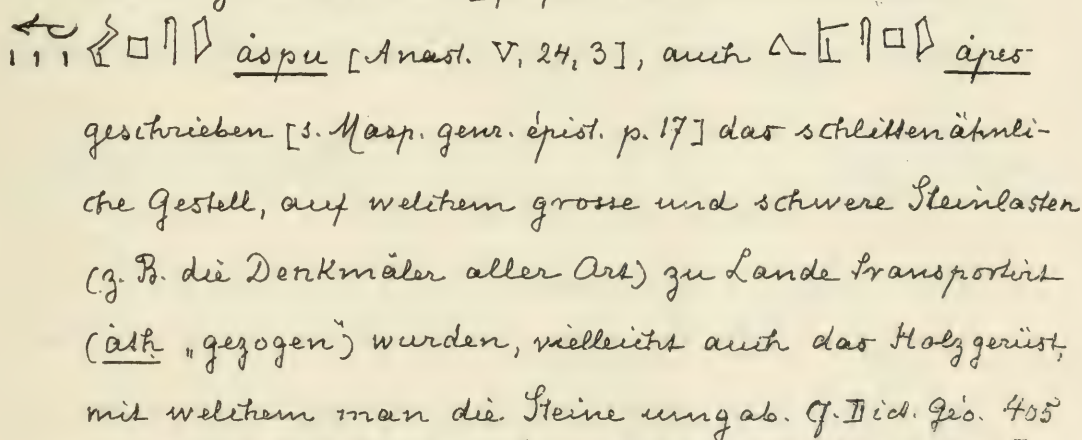 áspu [Anast. V, 24, 3], auch ápes
geschrieben [s. Masp. genr. épist. p. 17] das schlittenähnli-
che Gestell, auf welchem grosse und schwere Steinlasten
(z. B. die Denkmäler aller Art) zu Lande transportirt
(áth „gezogen“) wurden, vielleicht auch das Holzgerüst,
mit welchem man die Steine umgab. Cf. Dict. Géo. 405